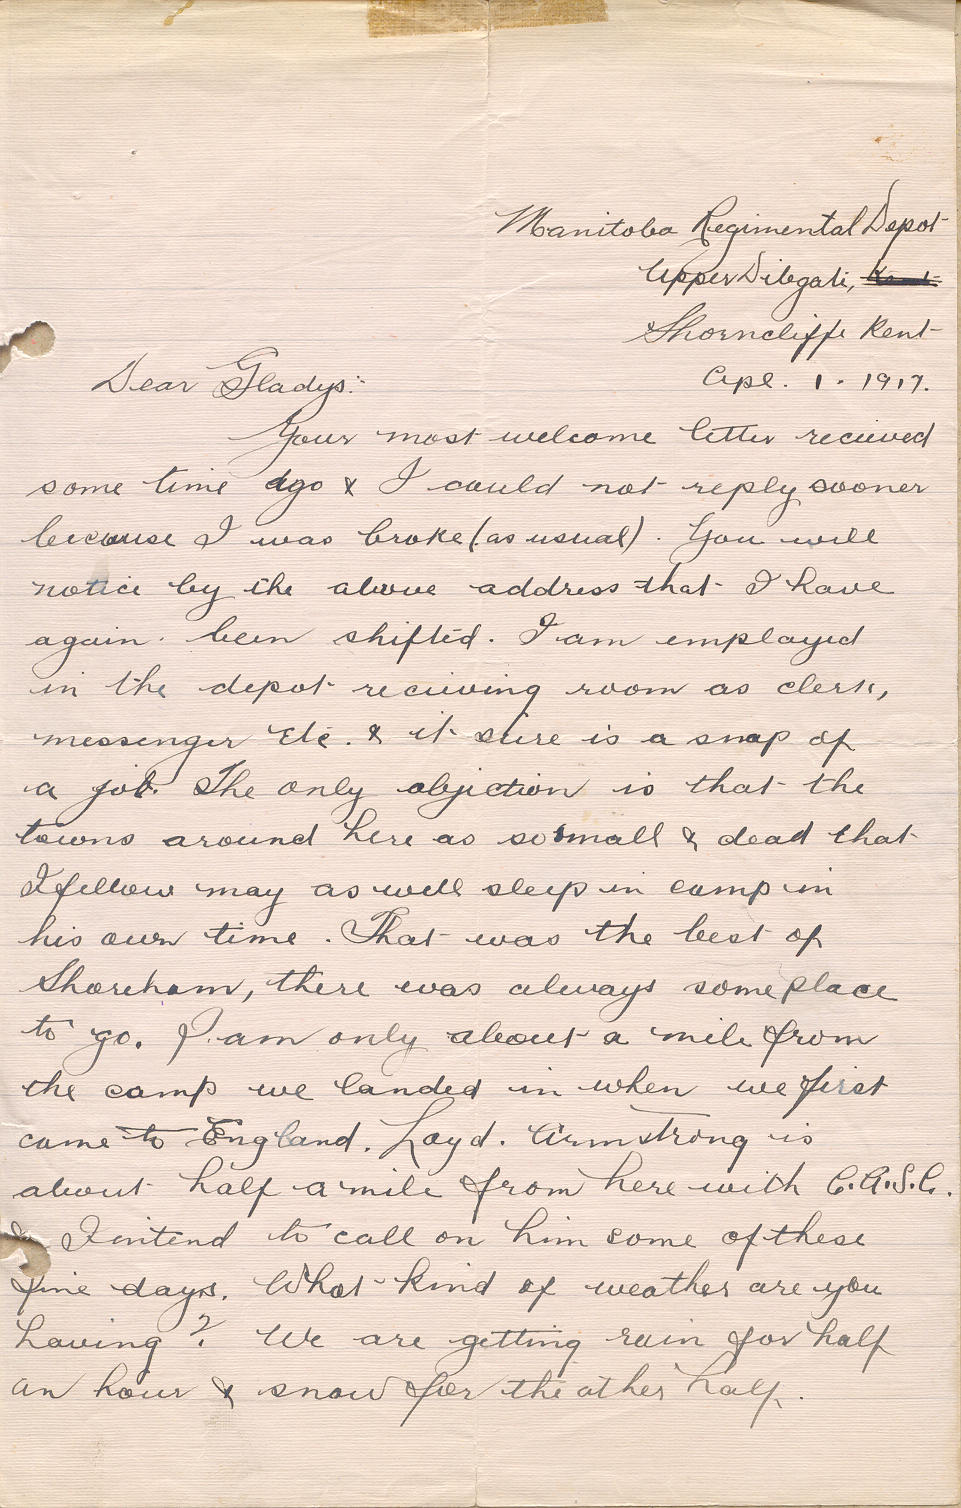 Manitoba Regimental Depot
Upper Dibgate,
Shorncliffe Kent
Apl. 1. 1917.
Dear Gladys:-
Your most welcome letter recieved
some time ago & I could not reply sooner
because I was broke (as usual). You will
notice by the above address that I have
again been shifted. I am employed
in the depot recieving room as clerk,
messenger etc. & it sure is a snap of
a job. The only objection is that the
towns around here as so small & dead that
I fellow may as well sleep in camp in
his own time. That was the best of
Shoreham, there was always some place
to go. I am only about a mile from
the camp we landed in when we first
came to England. Loyd. Armstrong is
about half a mile from here with C.A.S.C.
& I intend to call on him some of these
fine days. What kind of weather are you
having? We are getting rain for half
an hour & snow for the other half.